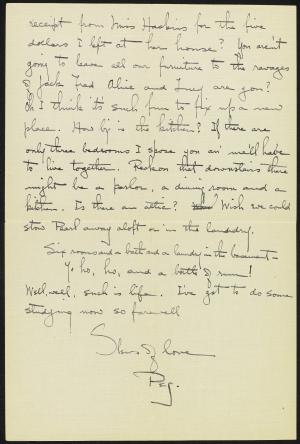 receipt from Miss Haskins for the five
dollars I left at her house? You aren't
going to leave all our furniture to the ravages
of Jack Fred Alice and Lucy are you?
Oh I think it's such fun to fix up a new
place. How big is the kitchen? If there are
only three bedrooms I spose you an' me'll have
to live together. Reckon that downstairs there
might be a parlor, a dining room and a
kitchen. Is there an attic? Wish we could
stow Pearl away aloft or in the laundry.
Six rooms and a bath and a laundry in the basement—
Yo ho, ho, and a bottle of rum!
Well, well, such is life. I've got to do some
studying now so farewell
Slews of love
Peg.